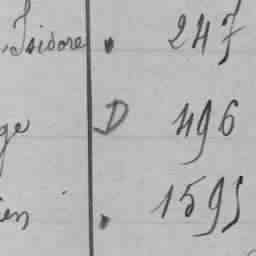 Isidore . 247
ge D 496
en . 1595